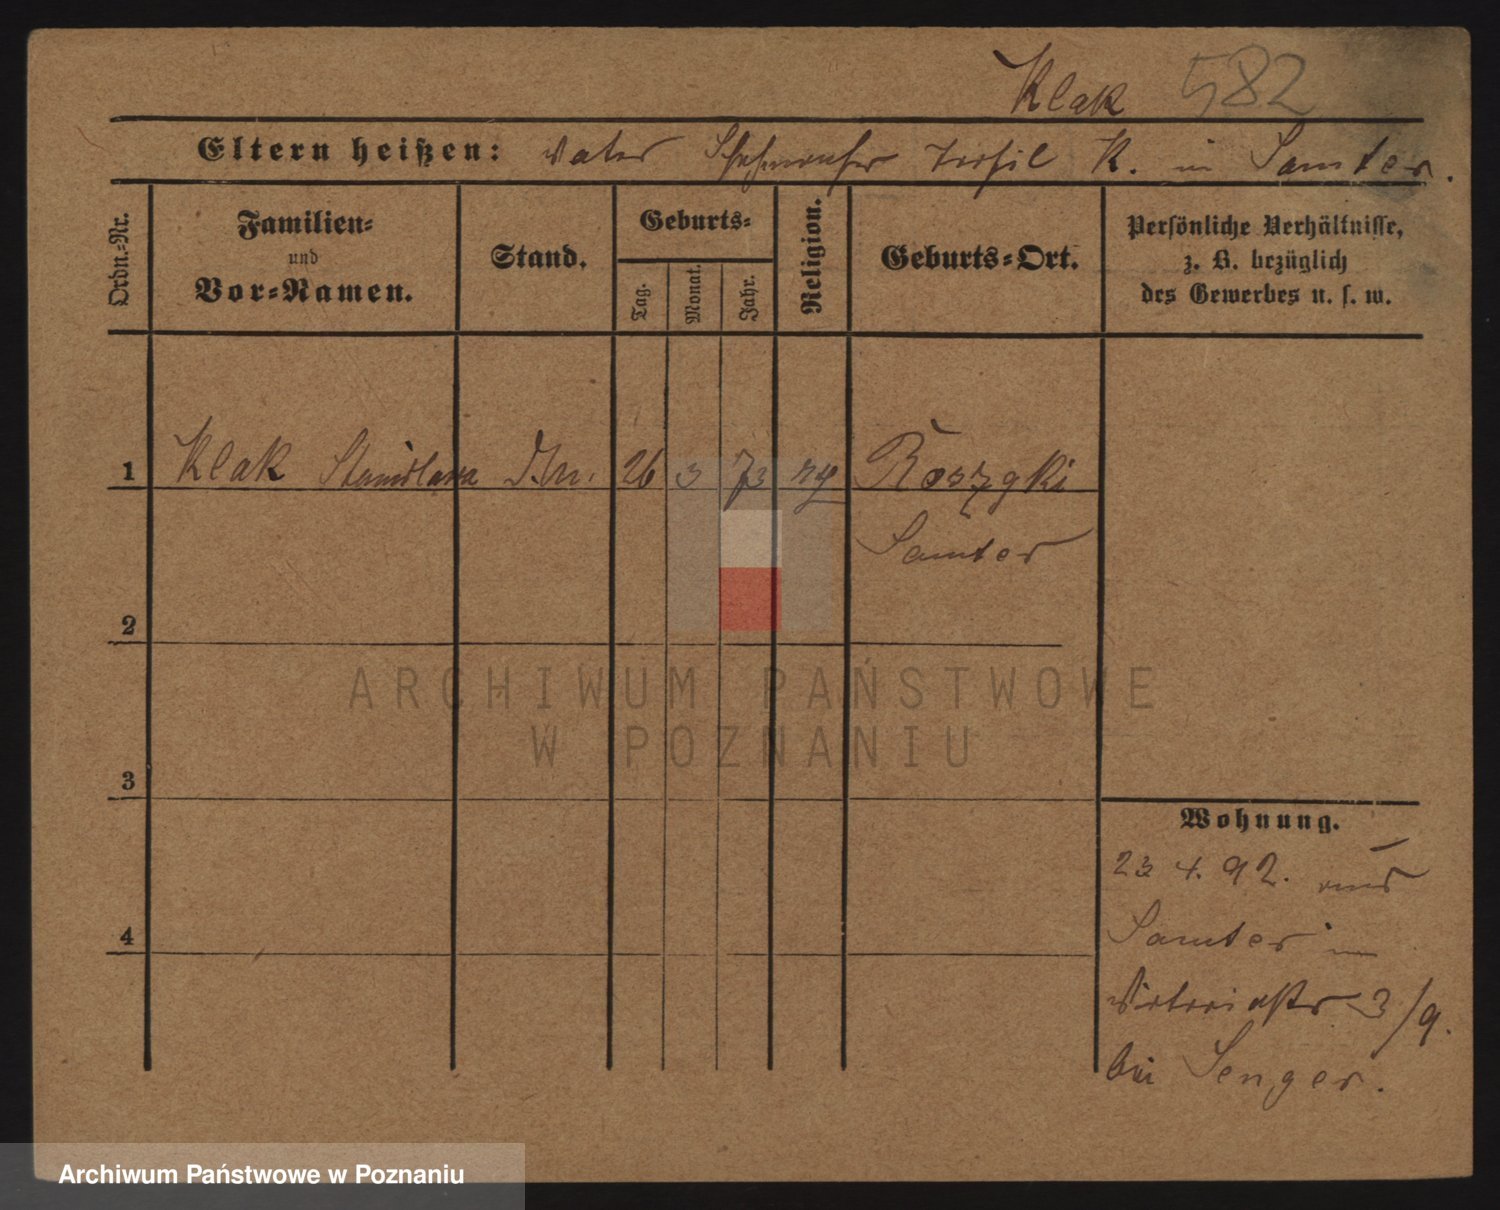 Klak 582
Eltern heißen: Vater Teofil K. in Samter.
Ordn.-Nr.
Familien-
und
Vor-Namen.
Stand.
Geburts-
Tag.
Monat.
Jahr.
Religion.
Geburts-Ort.
Persönliche Verhältnisse,
z. B. bezüglich
des Gewerbes u. s. w.
1 Klak Stanislawa 26 3 73
Samter
2
ARCHIWUM PAŃSTWOWE
W POZNANIU
3
4
Wohnung.
23 4. 92. aus
Samter in
Victoriastr 3/9.
bei Senger.
Archiwum Państwowe w Poznaniu